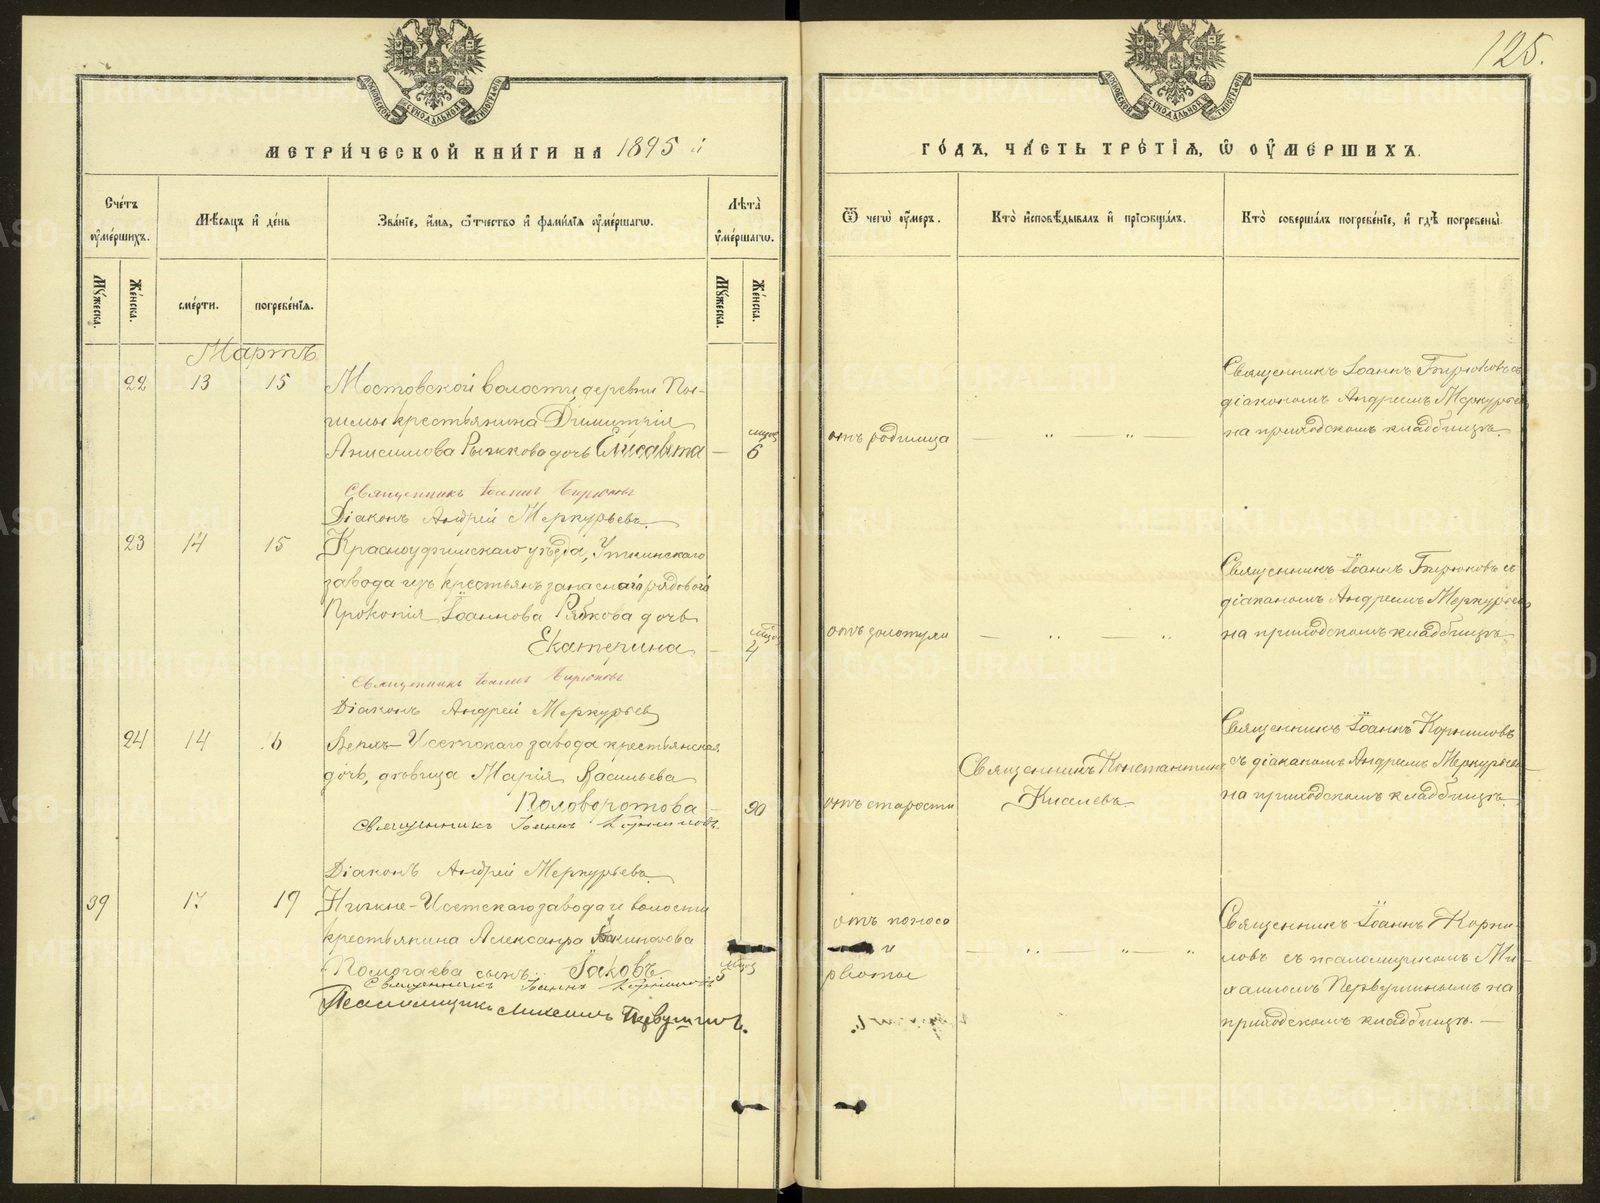 125.
МОСКОВСКОЙ СУНОДАЛЬНОЙ ТИПОГРАФІИ
МОСКОВСКОЙ СУНОДАЛЬНОЙ ТИПОГРАФІИ
МЕТРИ́ЧЕСКОЙ КНИ́ГИ НА 1895 й
ГО́ДЪ, ЧА́СТЬ ТРЕ́ТІѦ, Ѡ ОУ҆МЕ́РШИХЪ.
Сче́тъ оу҆ме́ршихъ.
Мѣ́сѧцъ и҆ де́нь
Зва́нїе, и҆́мѧ, ѻ҆́тчество и҆ фами́лїѧ оу҆ме́ршагѡ.
Лѣта̀ оу҆ме́ршагѡ.
Ѿ чегѡ̀ оу҆́меръ.
Кто̀ и҆сповѣ́дывалъ и҆ прїѡбща́лъ.
Кто̀ соверша́лъ погребе́нїе, и҆ гдѣ̀ погребены̀.
Му́жеска.
Же́нска.
сме́рти.
погребе́нїѧ.
Му́жеска.
Же́нска.
Мартъ
22 13 15 Мостовской волости, деревни Пы-
шмы крестьянина Димитрія
Анисимова Рычкова дочь Елисавета — 6 мѣс
отъ родимца — " — " —
Священникъ Іоаннъ Бирюковъ съ
діакономъ Андреемъ Меркурьевымъ
на приходскомъ кладбищѣ.
Священникъ Іоаннъ Бирюковъ
Діаконъ Андрей Меркурьевъ
23 14 15 Красноуфимскаго уѣзда, Уткинскаго
завода изъ крестьянъ запаснаго рядоваго
Прокопія Іоаннова Рябкова дочь
Екатерина — 4 мѣс
отъ золотухи — " — "
Священникъ Іоаннъ Бирюковъ съ
діакономъ Андреемъ Меркурьевымъ
на приходскомъ кладбищѣ.
Священникъ Іоаннъ Бирюковъ
Діаконъ Андрей Меркурьевъ
24 14 16 Верхъ-Исетскаго завода крестьянская
дочь, дѣвица Марія Васильева
Половоротова — 90
отъ старости
Священникъ Константинъ
Киселевъ
Священникъ Іоаннъ Корниловъ
съ діакономъ Андреемъ Меркурьевымъ
на приходскомъ кладбищѣ
Священникъ Іоаннъ Корниловъ.
Діаконъ Андрей Меркурьевъ
39 17 19 Нижне-Исетскаго завода и волости
крестьянина Александра
Помогаева сынъ Іаковъ 5 мѣс
отъ поноса
и
рвоты — " — " —
Священникъ Іоаннъ Корни-
ловъ съ псаломщикомъ Ми-
хаиломъ Первушинымъ на
приходскомъ кладбищѣ. —
Священникъ Іоаннъ Корниловъ
Псаломщикъ Михаилъ Первушинъ.
METRIKI.GASO-URAL.RU